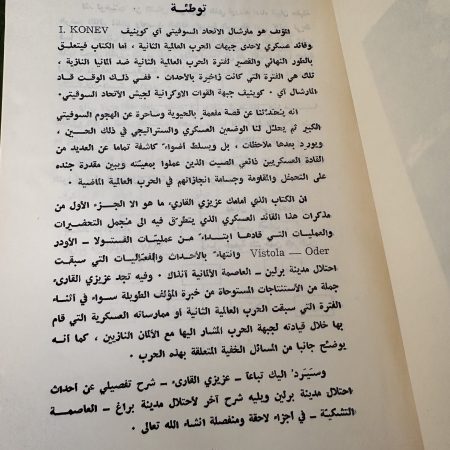 توطئة
المؤلف هو مارشال الاتحاد السوفيتي آي كوينيف I. KONEV
وقائد عسكري لاحدى جبهات الحرب العالمية الثانية ، اما الكتاب فيتعلق
بالطور النهائي والقصير لفترة الحرب العالمية الثانية ضد المانيا النازية ،
تلك هي الفترة التي كانت زاخيرة بالاحداث . ففي ذلك الوقت قاد
المارشال آي . كوينيف جبهة القوات الاوكرانية لجيش الاتحاد السوفيتي .
انه يحدثنا عن قصة ملعمة بالحيوية وساخرة عن الهجوم السوفيتي
الكبير ثم يحلل لنا الوضعين العسكري والستراتيجي في ذلك الحين ،
ويورد بعدها ملاحظات ، بل ويسلط اضواء كاشفة تماما عن العديد من
القادة العسكريين ذائعي الصيت الذين عملوا بمعيته ويبين مقدرة جنده
على التحمل والمقاومة وجسامة انجازاتهم في الحرب العالمية الماضية .
ان الكتاب الذي امامك عزيزي القارىء ما هو الا الجزء الاول من
مذكرات هذا القائد العسكري الذي يتطرق فيه الى مجمل التحضيرات
والعمليات التي قادها ابتداء من عمليات الفستولا – الأودر
Vistola — Oder وانتهاء بالأحداث والفعاليات التي سبقت
احتلال مدينة برلين – العاصمة الالمانية آنذاك . وفيه تجد عزيزي القارىء
جملة من الأستنتاجات المستوحاة من خبرة المؤلف الطويلة سواء في اثناء
الفترة التي سبقت الحرب العالمية الثانية أو ممارساته العسكرية التي قام
بها خلال قيادته لجبهة الحرب المشار اليها مع الالمان النازيين ، كما أنه
يوضح جانبا من المسائل الخفية المتعلقة بهذه الحرب .
وسيرد اليك تباعا – عزيزي القارىء – شرح تفصيلي عن احداث
احتلال مدينة برلين ويليه شرح آخر لأحتلال مدينة براغ – العاصمة
التشيكية – في أجزاء لاحقة ومنفصلة انشاء الله تعالى .